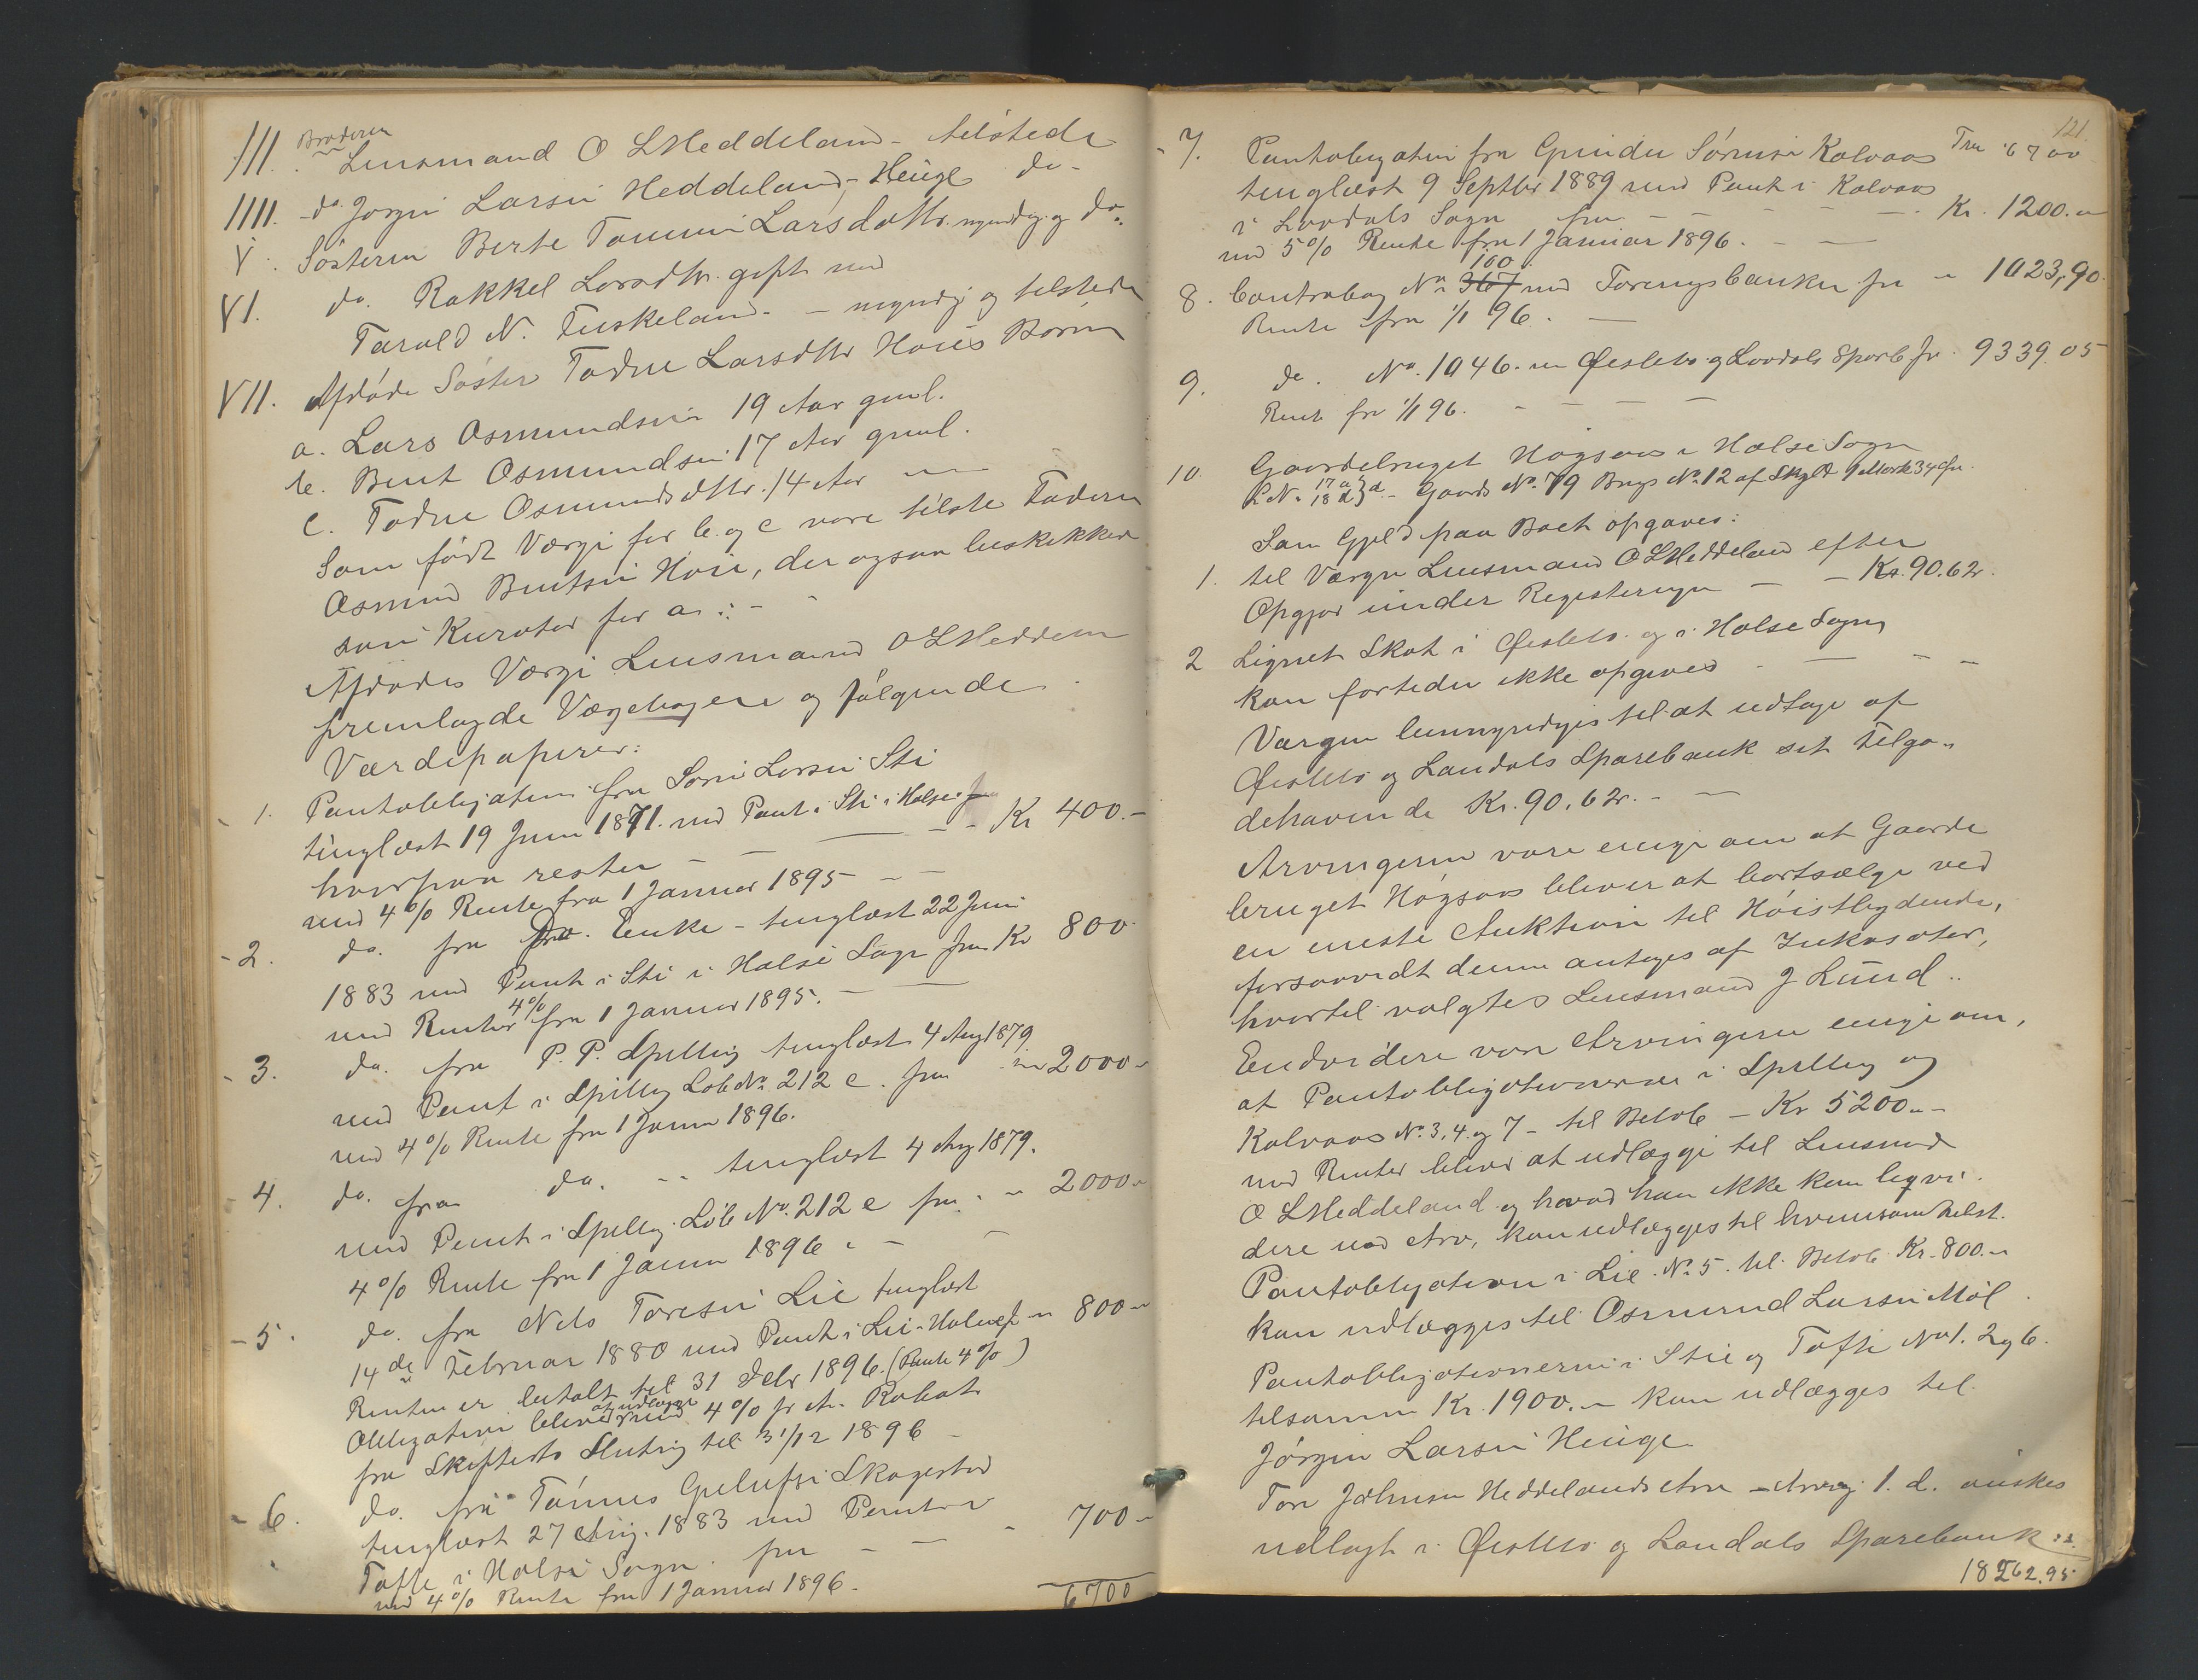 III. Broderen Lensmand O L Heddeland - tilstede
IIII. do Jørgen Larsen Heddeland, Heuge do -
V. Søsteren Berte Tomine Larsdottr. myndig og do.
VI. do. Rakkel Larsdtr. gift med
Tarald N. Tuskeland. - myndig og tilstede
VII. Afdøde Søster Todne Larsdttr Høies Børn
a. Lars Osmundsen 19 Aar gml.
b. Bent Osmundsen 17 Aar gml.
c. Todne Osmundsdttr. 14 Aar
Som født Værge for b. og c var tilste Faderen
Osmund Bentsen Høie, der ogsaa beskikkes
som Kurator for a. : -
Afdødes Værge Lensmand O L Heddeland
fremlagde Værgebøgene og følgende
Værdipapirer:
1. Pantobligation fra Søren Larsen Sti
tinglæst 19 Juni 1871. med Pant i Sti i Halse
hvorpaa rester - - - - Kr 400.-
med 4% Rente fra 1 Januar 1895 - -
2. do. fra Do. Enke - tinglæst 22 Juni
1883 med Pant i Sti i Halse Sogn for Kr 800
med Renter 4% fra 1 Januar 1895. - -
3. do. fra P. P. Spilling tinglæst 4 Aug 1879
med Pant i Spilling Løb No 212 c. for 2000
med 4% Rente fra 1 Januar 1896.
4. do. fra do. - - tinglæst 4 Aug 1879.
med Pant i Spilling Løb No. 212 e for. 2000
4% Rente fra 1 Januar 1896. - -
5. do. fra Nils Toresen Lie tinglæst
14de Februar 1880 med Pant i Lie - Halse f 800
Renten er betalt til 31 Debr 1896. (Rente 4%)
Obligation bliver at udlægge med 4% pr A. Rabat
fra Skiftets Slutning til 31/12 1896
6. do. fra Tønnes Gjelufsen Skagestad
tinglæst 27 Aug. 1883 med Pant i
Tofte i Halse Sogn for - - - 700
med 4% Rente fra 1 Januar 1896.
6700
121.
7. Pantobligation fra Gunder Sørensen Kalvaas Tra 6700
tinglæst 9 Septbr 1889 med Pant i Kalvaas
i Laudals Sogn for - - - - Kr. 1200.
med 5% Rente fra 1 Januar 1896. - -
100
8. Contrabog No 367 med Foreningsbanken for 1023,90.
Rente fra 1/1 96. -
9. do. No. 1046. Øislebø og Laudals Sparb fr. 9339.05
Rente fra 1/1 96. - - - -
10. Gaardebruget Høgsaas i Halse Sogn
L No 17 a 18 d } d - Gaards No. 79 Brugs No. 12 af Skyld 1 Mark 34 Øre.
Som Gjeld paa Boet opgaves:
1. til Værgen Lensmand O L Heddeland efter
Opgjør under Registeringen - - Kr. 90.62.
2 Lignet Skat i Øislebø og i Halse Sogn
kan fortiden ikke opgives - - - -
Værgen bemyndiges til at udtage af
Øislebø og Laudals Sparebank sit Tilgo-
dehavende Kr. 90.62. - -
Arvingerne vare enige om at Gaarde
bruget Høgsaas bliver at bortsælge ved
en eneste Auktion til Høistbydende,
forsaavidt denne antages af Inkasator,
hvortil valgtes Lensmand J Lund ..
Endvidere var Arvingerne enige om,
at Pantobligationerne i Spilling og
Kalvaas No. 3, 4. og 7 - til Beløb - Kr 5200.-
med Renter bliver at udlægge til Lensmd
O L Heddeland og hvad han ikke kan liqvi-
dere ved Arv, kan udlægges til hvemsomhelst.
Pantobligation i Lie No. 5. til Beløb Kr. 800.
kan udlægges til Osmund Larsen Møl
Pantobligationerne i Stie og Tofte No 1. 2 og 6.
tilsammen Kr. 1900. kan udlægges til
Jørgen Larsen Heuge
Tore Johnsen Heddelands Arv - Arving 1. d. ønskes
udlagt i Øislebø og Laudals Sparebank
18262.95